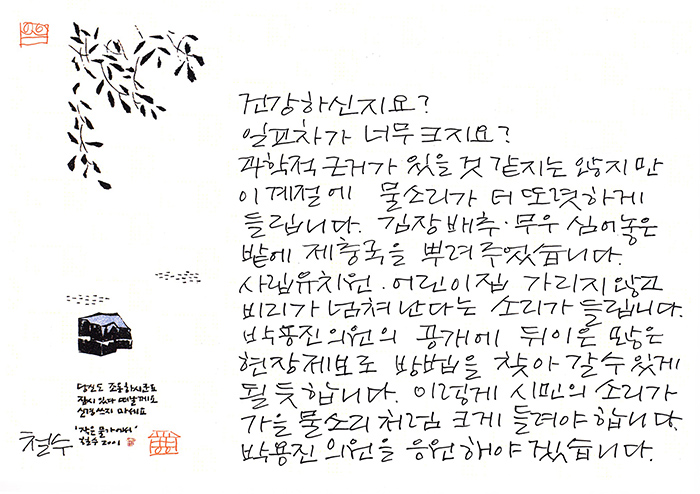 건강하신지요?
일교차가 너무 크지요?
과학적 근거가 있을 것 같지는 않지만
이 계절에 물소리가 더 또렷하게
들립니다. 김장 배추·무우 심어놓은
밭에 제충국을 뿌려 주었습니다.
사립유치원·어린이집 가리지 않고
비리가 넘쳐 난다는 소리가 들립니다.
박용진 의원의 공개에 뒤이은 많은
현장제보로 방법을 찾아 갈 수 있게
될 듯 합니다. 이렇게 시민의 소리가
가을 물소리처럼 크게 들려야 합니다.
박용진 의원을 응원해야 겠습니다.
당신도 조용하시군요
잠시 있다 떠날게요
신경쓰지 마세요
'작은 물가에서'
철수 2001
철수